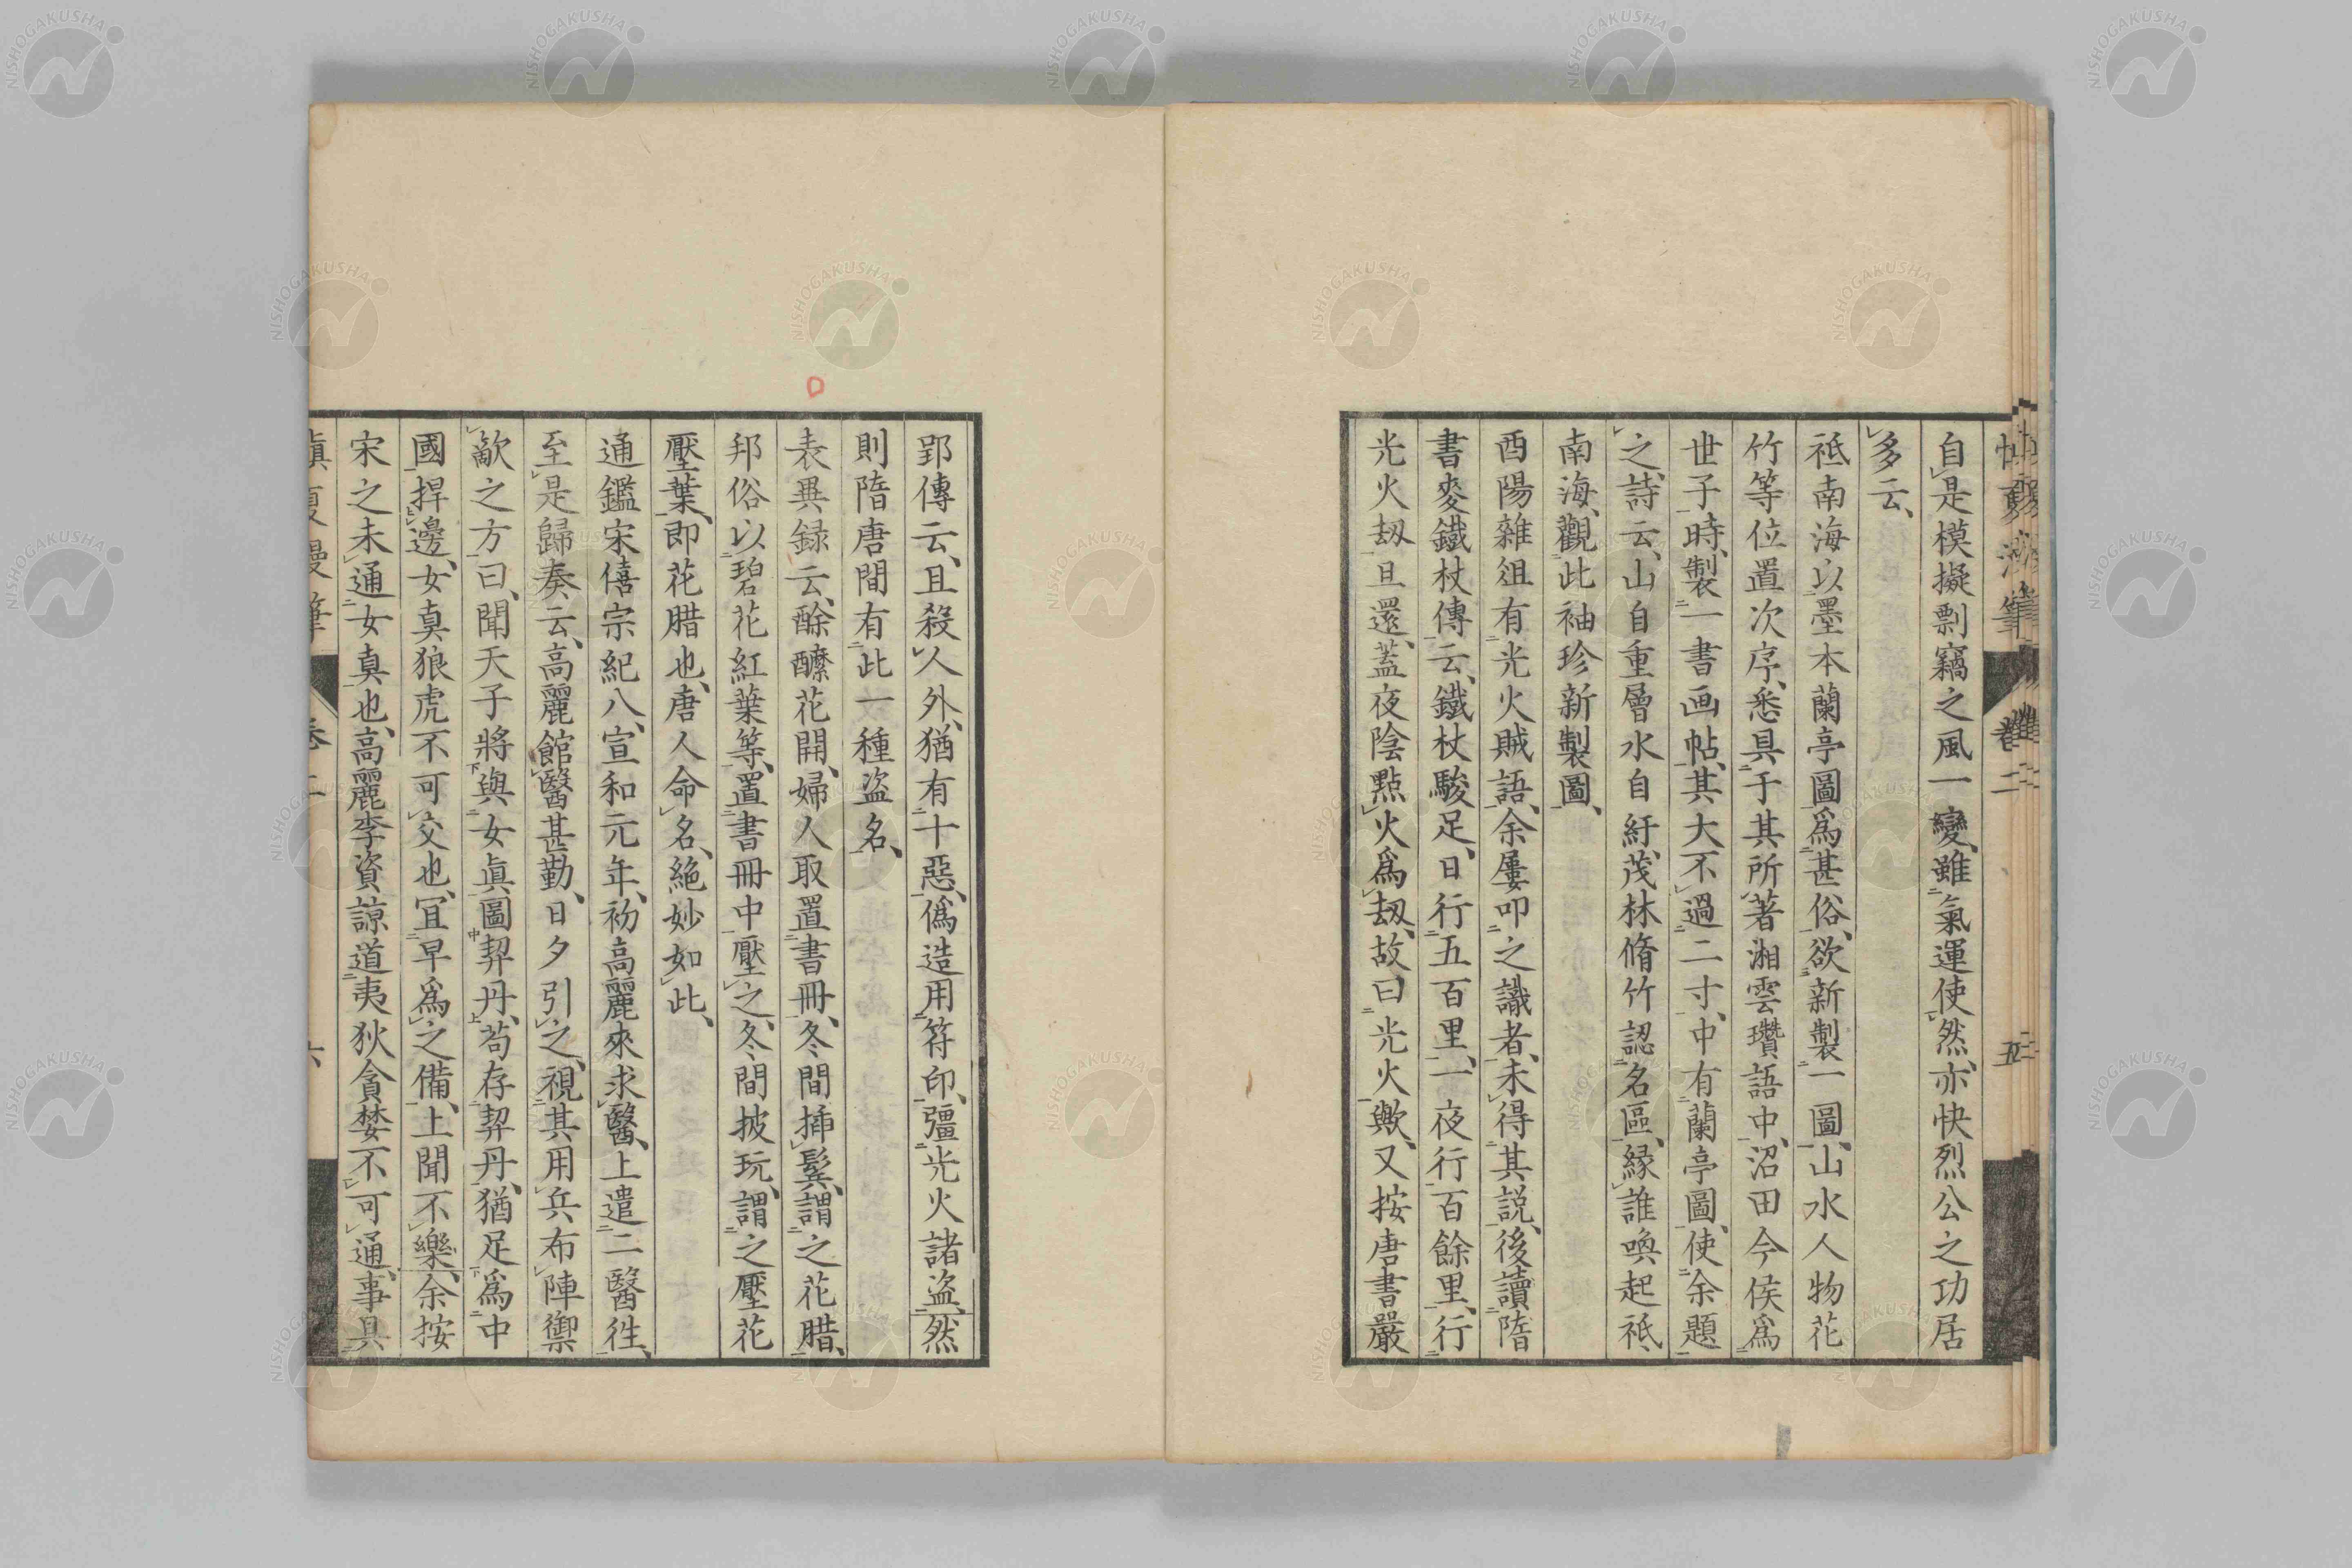 自是模擬剽竊之風一變、雖氣運使然、亦快烈公之功居
多云、
祗南海以墨本蘭亭圖爲甚俗、欲新製一圖、山水人物花
竹等位置次序、悉具于其所著湘雲瓚語中、沼田今侯爲
世子時、製一書画帖、其大不過二寸、中有蘭亭圖、使余題
之、詩云、山自重層水自紆、茂林脩竹認名區、縁誰喚起祗
南海、觀此袖珍新製圖、
酉陽雜俎有光火賊語、余屢叩之識者、未得其説、後讀隋
書麥鐵杖傳云、鐵杖駿足、日行五百里、一夜行百餘里、行
光火刧旦還、蓋夜陰點火爲刧、故曰光火歟、又按唐書嚴
郢傳云、且殺人外、猶有十惡、僞造用符印、彊光火諸盜、然
則隋唐間有此一種盜名、
表異録云、酴醾花開、婦人取置書冊、冬間揷鬂、謂之花腊、
邦俗以碧花紅葉等、置書冊中壓之、冬間披玩、謂之壓花
壓葉、即花腊也、唐人命名、絶妙如此、
通鑑宋僖宗紀八、宣和元年、初高麗來求醫、上遣二醫徃、
至是歸奏云、高麗館醫甚勤、日夕引之、視其用兵布陣禦
敵之方、曰、聞天子將與女眞圖契丹、苟存契丹、猶足爲中
國捍邊、女眞狼虎不可交也、冝早爲之備、上聞不樂、余按
宋之未通女眞也、高麗李資諒道夷狄貪婪不可通、事具
卷二
六
NISHOGAKUSHA